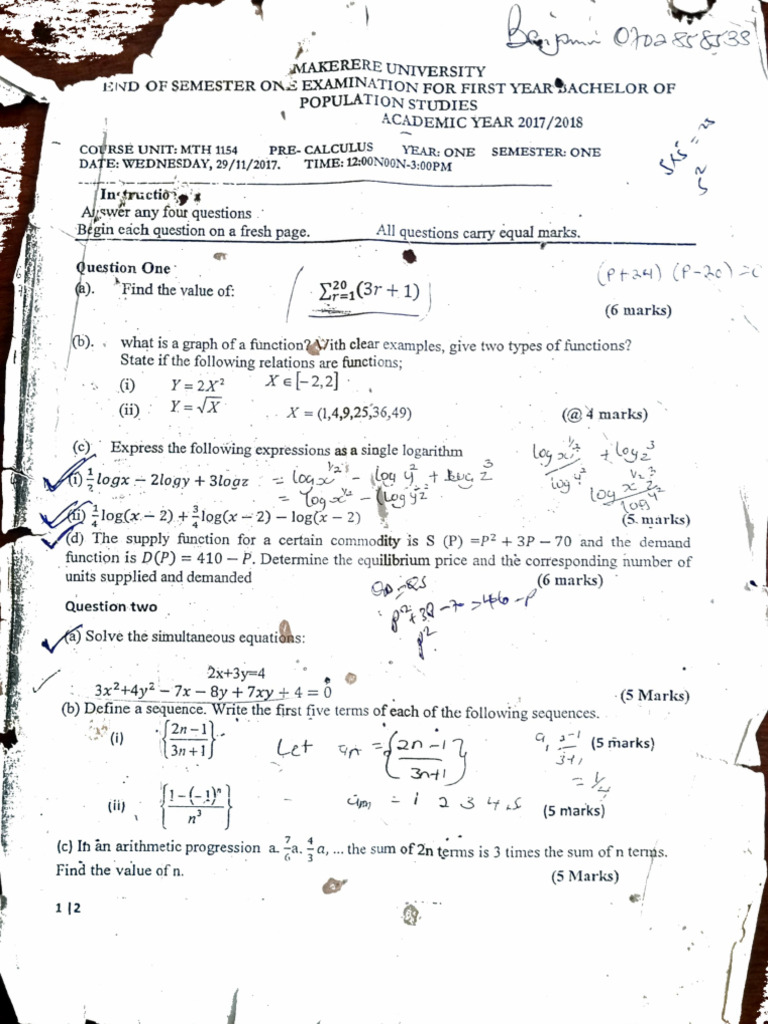 Benjamin 0702858538
MAKERERE UNIVERSITY
END OF SEMESTER ONE EXAMINATION FOR FIRST YEAR BACHELOR OF
POPULATION STUDIES
ACADEMIC YEAR 2017/2018
COURSE UNIT: MTH 1154 PRE- CALCULUS YEAR: ONE SEMESTER: ONE
DATE: WEDNESDAY, 29/11/2017. TIME: 12:00NOON-3:00PM
5x5 = 25
5²
Instructions
Answer any four questions
Begin each question on a fresh page. All questions carry equal marks.
Question One
(P+24) (P-20) = 0
(a). Find the value of: ∑²⁰ᵣ₌₁(3r + 1)
(6 marks)
(b). what is a graph of a function? With clear examples, give two types of functions?
State if the following relations are functions;
(i) Y = 2X² X ∈ [−2,2]
(ii) Y = √X X = (1,4,9,25,36,49) (@ 4 marks)
(c) Express the following expressions as a single logarithm
(i) ½logx − 2logy + 3logz = log x^½ - log y² + log z³
(ii) ¼log(x − 2) + ¾log(x − 2) − log(x − 2)
(5 marks)
(d) The supply function for a certain commodity is S (P) =P² + 3P − 70 and the demand
function is D(P) = 410 − P. Determine the equilibrium price and the corresponding number of
units supplied and demanded (6 marks)
Question two
(a) Solve the simultaneous equations:
2x+3y=4
3x²+4y² − 7x − 8y + 7xy + 4 = 0 (5 Marks)
(b) Define a sequence. Write the first five terms of each of the following sequences.
(i) {(2n−1)/(3n+1)} Let aₙ = {(2n-1)/(3n+1)} a₁ (2-1)/(3+1) (5 marks)
= ¼
(ii) {(1−(−1)ⁿ)/n³} = 1 2 3 4 5 (5 marks)
(c) In an arithmetic progression a. 7/6a. 4/3a, ... the sum of 2n terms is 3 times the sum of n terms.
Find the value of n. (5 Marks)
1 |2